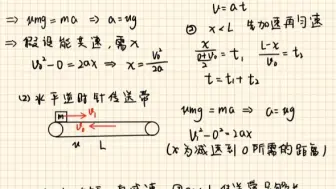 ⇒ μmg = ma ⇒ a = μg
⇒ 假设能共速，需x
v₀² - 0 = 2ax ⇒ x = v₀²/2a
(2) 水平逆时针传送带
m v₁
v₀
μ L
v = at
② x < L 先加速再匀速
x/((0+v₀)/2) = t₁ (L-x)/v₀ = t₂
t = t₁ + t₂
μmg = ma ⇒ a = μg
v₁² - 0² = 2ax
(x为减速到0所需的距离)